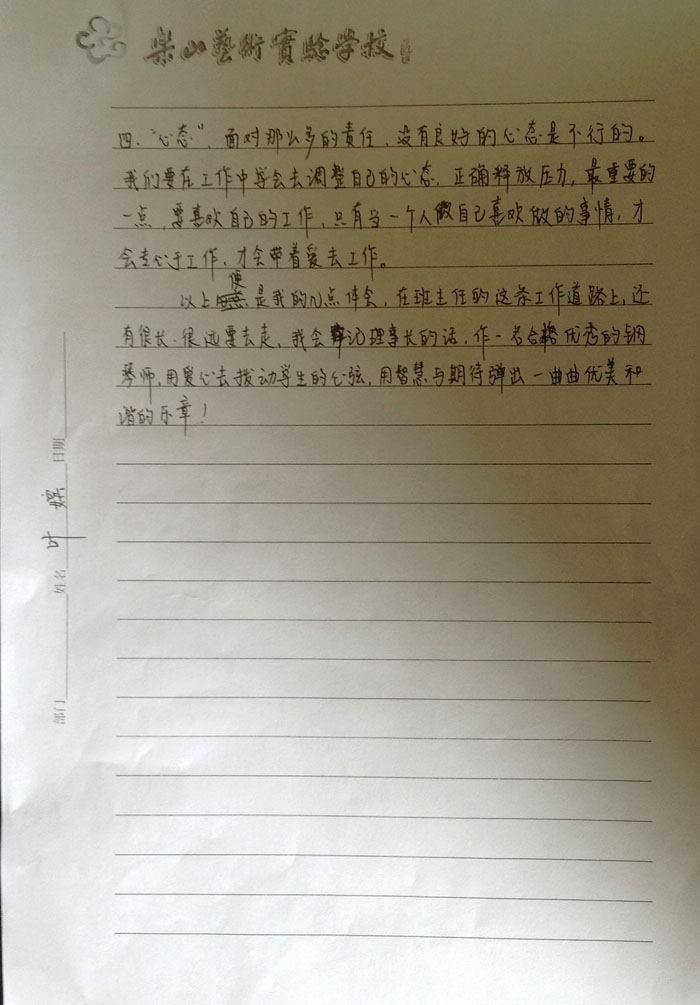 樂山藝術實驗學校
四、“心态”，面对那么多的责任，没有良好的心态是不行的。
我们要在工作中学会去调整自己的心态，正确释放压力，最重要的
一点，要喜欢自己的工作，只有当一个人做自己喜欢做的事情，才
会专心于工作，才会带着爱去工作。
以上便是我的几点体会，在班主任的这条工作道路上，还
有很长、很远要去走，我会牢记理事长的话，作一名合格优秀的钢
琴师，用爱心去拨动学生的心弦，用智慧与期待弹出一曲曲优美和
谐的乐章！
部门 姓名 叶嫔 日期